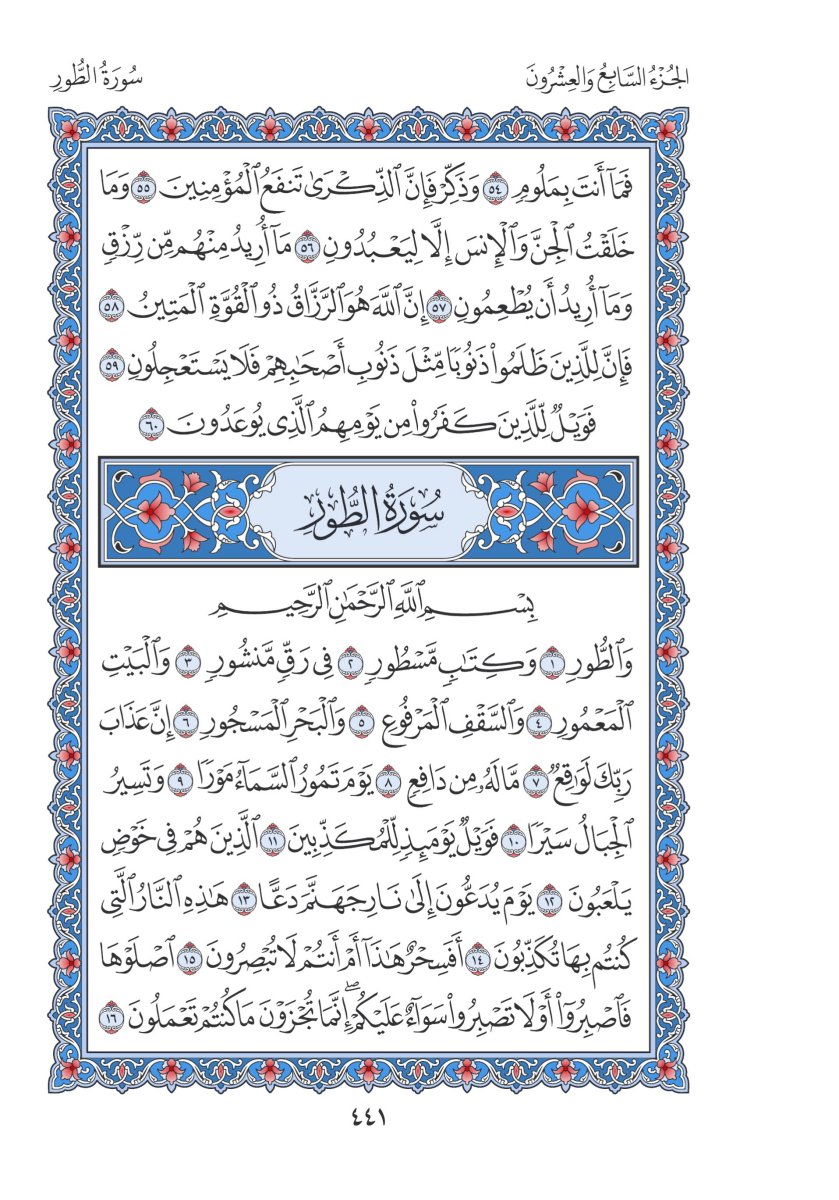 الجُزْءُ السَّابِعُ وَالعِشْرُونَ
سُورَةُ الطُّورِ
فَمَآ أَنتَ بِمَلُومٍ ٥٤ وَذَكِّرْ فَإِنَّ ٱلذِّكْرَىٰ تَنفَعُ ٱلْمُؤْمِنِينَ ٥٥ وَمَا
خَلَقْتُ ٱلْجِنَّ وَٱلْإِنسَ إِلَّا لِيَعْبُدُونِ ٥٦ مَآ أُرِيدُ مِنْهُم مِّن رِّزْقٍ
وَمَآ أُرِيدُ أَن يُطْعِمُونِ ٥٧ إِنَّ ٱللَّهَ هُوَ ٱلرَّزَّاقُ ذُو ٱلْقُوَّةِ ٱلْمَتِينُ ٥٨
فَإِنَّ لِلَّذِينَ ظَلَمُوا۟ ذَنُوبًا مِّثْلَ ذَنُوبِ أَصْحَٰبِهِمْ فَلَا يَسْتَعْجِلُونِ ٥٩
فَوَيْلٌ لِّلَّذِينَ كَفَرُوا۟ مِن يَوْمِهِمُ ٱلَّذِى يُوعَدُونَ ٦٠
سُورَةُ الطُّورِ
بِسْمِ ٱللَّهِ ٱلرَّحْمَٰنِ ٱلرَّحِيمِ
وَٱلطُّورِ ١ وَكِتَٰبٍ مَّسْطُورٍ ٢ فِى رَقٍّ مَّنشُورٍ ٣ وَٱلْبَيْتِ
ٱلْمَعْمُورِ ٤ وَٱلسَّقْفِ ٱلْمَرْفُوعِ ٥ وَٱلْبَحْرِ ٱلْمَسْجُورِ ٦ إِنَّ عَذَابَ
رَبِّكَ لَوَٰقِعٌ ٧ مَّا لَهُۥ مِن دَافِعٍ ٨ يَوْمَ تَمُورُ ٱلسَّمَآءُ مَوْرًا ٩ وَتَسِيرُ
ٱلْجِبَالُ سَيْرًا ١٠ فَوَيْلٌ يَوْمَئِذٍ لِّلْمُكَذِّبِينَ ١١ ٱلَّذِينَ هُمْ فِى خَوْضٍ
يَلْعَبُونَ ١٢ يَوْمَ يُدَعُّونَ إِلَىٰ نَارِ جَهَنَّمَ دَعًّا ١٣ هَٰذِهِ ٱلنَّارُ ٱلَّتِى
كُنتُم بِهَا تُكَذِّبُونَ ١٤ أَفَسِحْرٌ هَٰذَآ أَمْ أَنتُمْ لَا تُبْصِرُونَ ١٥ ٱصْلَوْهَا
فَٱصْبِرُوٓا۟ أَوْ لَا تَصْبِرُوا۟ سَوَآءٌ عَلَيْكُمْ ۖ إِنَّمَا تُجْزَوْنَ مَا كُنتُمْ تَعْمَلُونَ ١٦
٤٤١